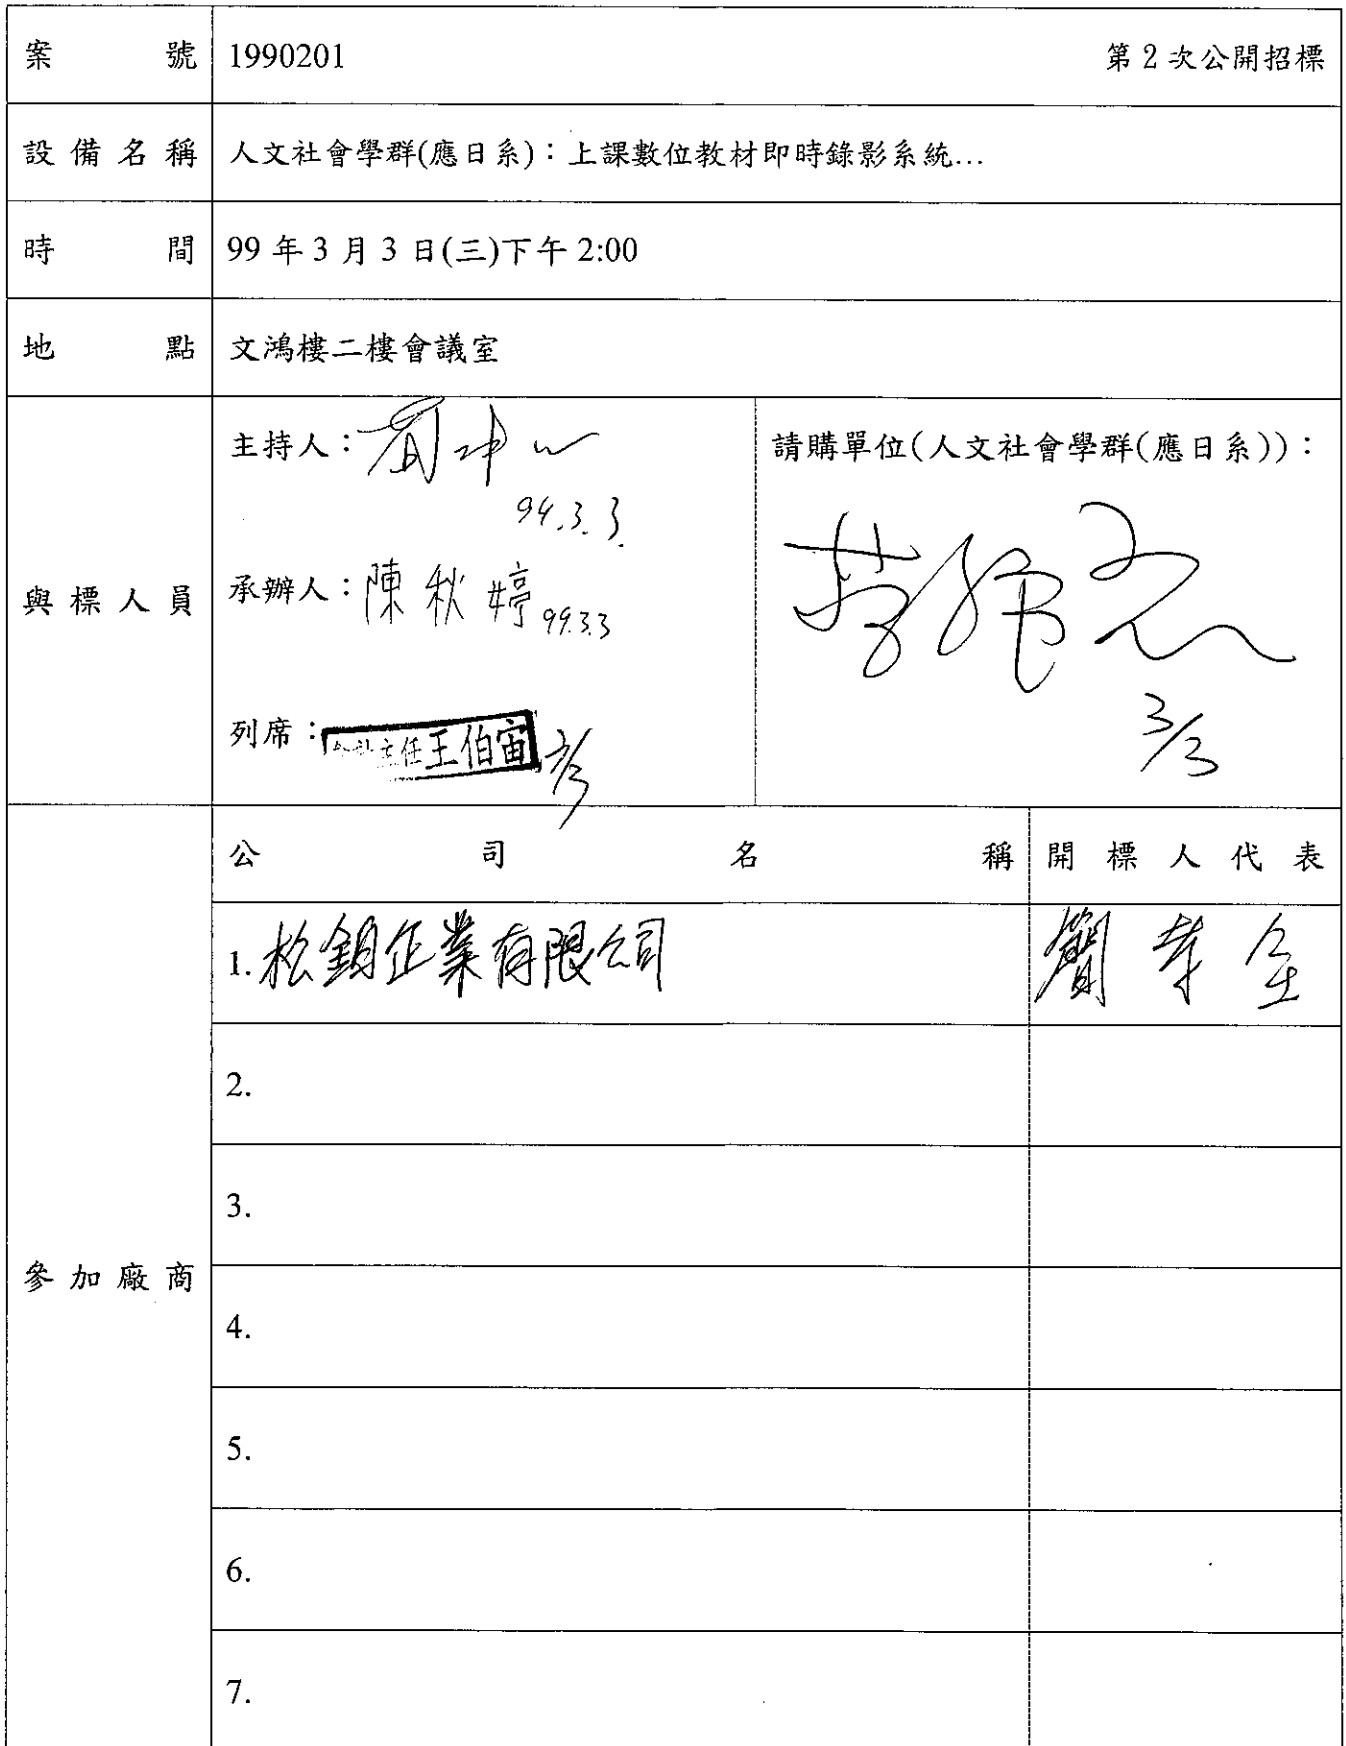 案號 1990201 第2次公開招標
設備名稱 人文社會學群(應日系)：上課數位教材即時錄影系統…
時間 99年3月3日(三)下午2:00
地點 文鴻樓二樓會議室
與標人員
主持人：
94.3.3.
承辦人：陳秋婷 99.3.3
列席：會計主任王伯宙 3/3
請購單位(人文社會學群(應日系))：
3/3
參加廠商
公司名稱 開標人代表
1.松鎖企業有限公司
2.
3.
4.
5.
6.
7.